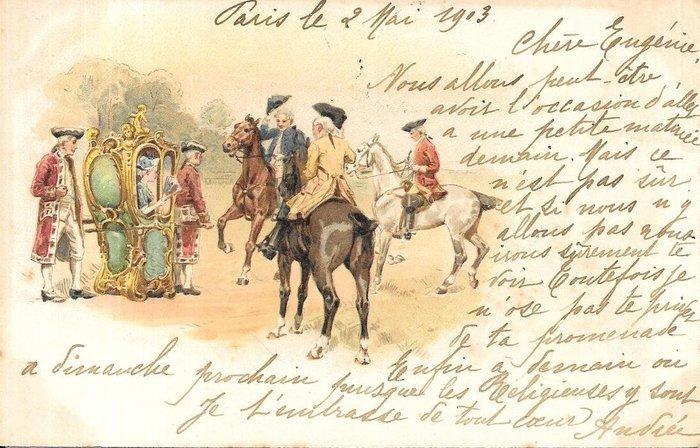 Paris le 2 Mai 1903
Chère Eugénie,
Nous allons peut-être
avoir l'occasion d'aller
a une petite matinée
demain. Mais ce
n'est pas sûr
et si nous n'y
allons pas nous
irons sûrement te
voir Toutefois je
n'ose pas te priver
de ta promenade
Enfin a demain ou
a dimanche prochain puisque les Religieuses y sont
Je t'embrasse de tout cœur Andrée